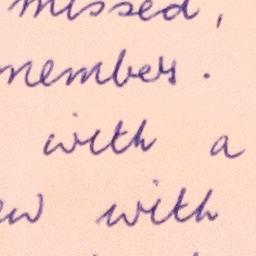 missed,
member.
with a
ew with